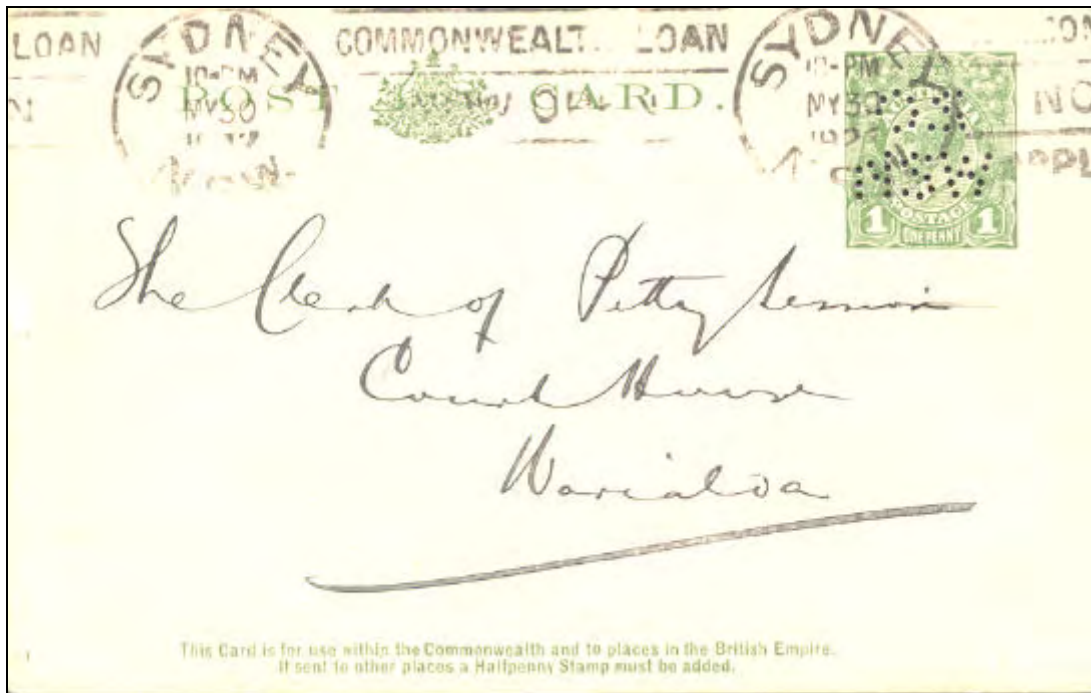 LOAN
COMMONWEALT LOAN
SYDNEY
10-PM
MY 30
N.S.W.
SYDNEY
PM
MY 30
POST CARD.
NSW
POSTAGE
1 ONE PENNY 1
The Clerk of Petty Session
Court House
Warialda
This Card is for use within the Commonwealth and to places in the British Empire.
If sent to other places a Halfpenny Stamp must be added.